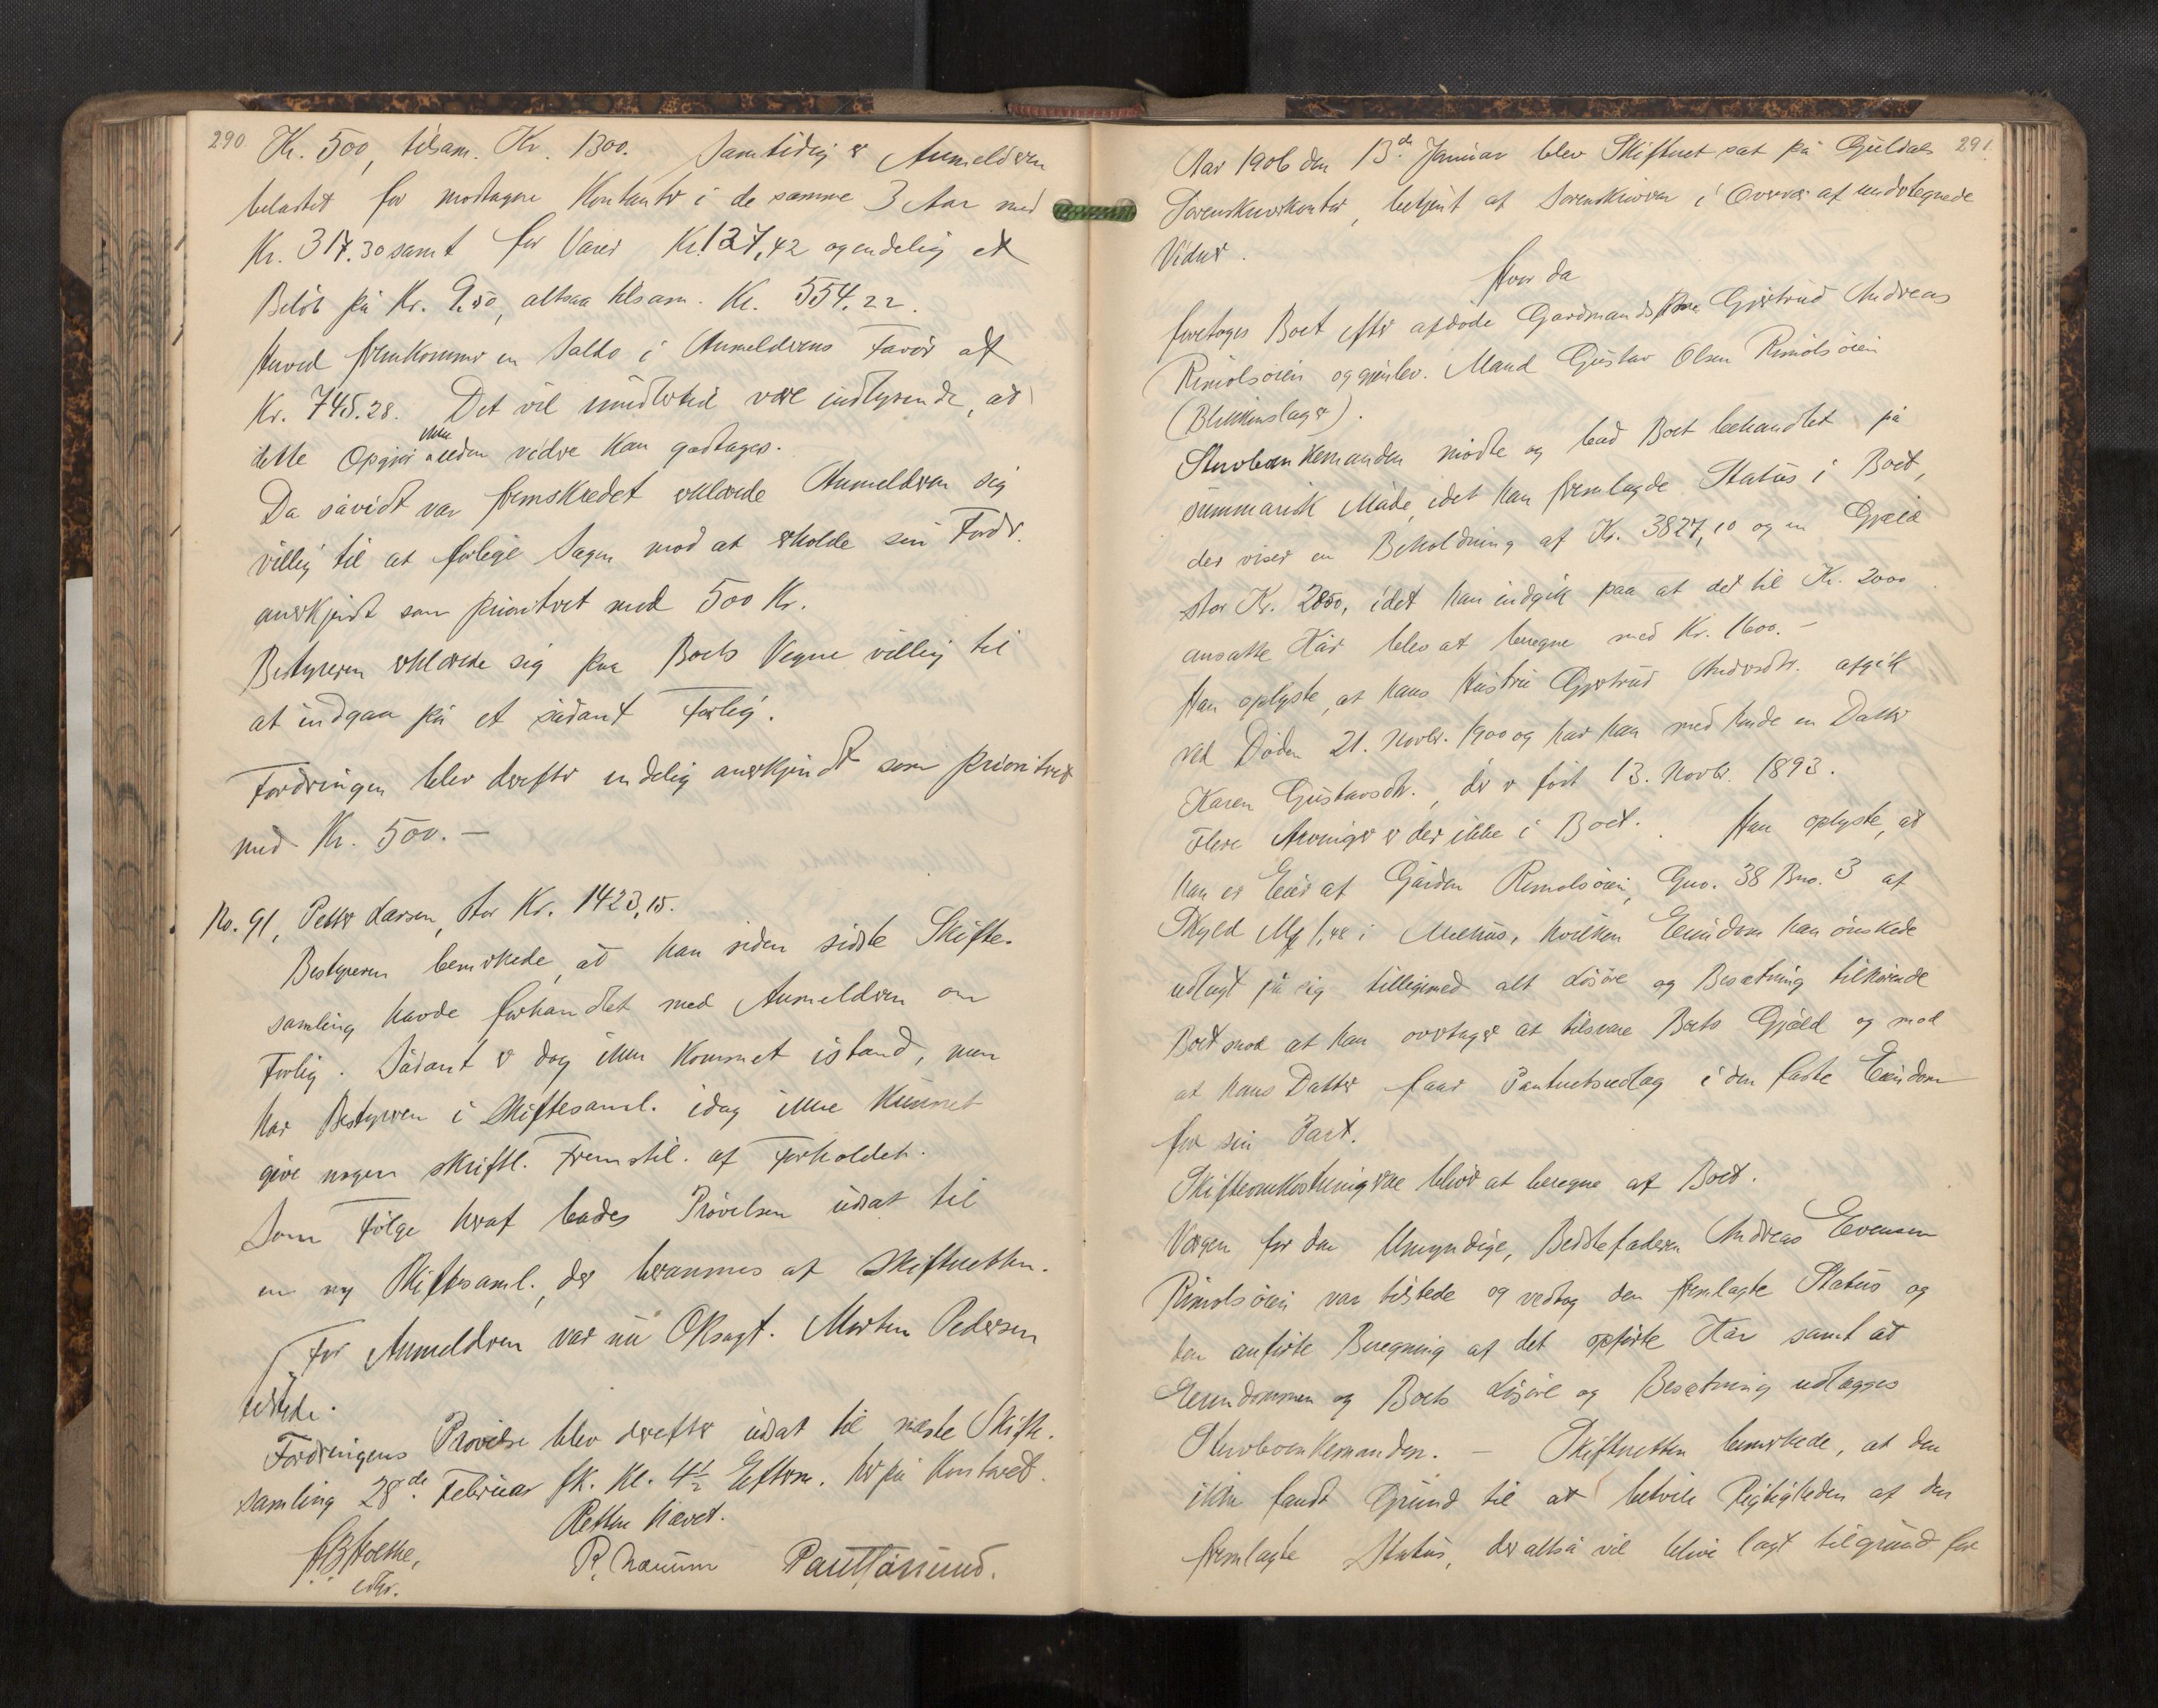 290
Kr. 500, tilsam. Kr. 1300. Samtidig er Anmelderen
belastet for modtagne Kontanter i de samme 3 Aar med
Kr. 317.30 samt for Varer Kr. 127,42 og endelig et
Beløb på Kr. 9.50, altsaa tilsam. Kr. 554.22.
Herved fremkommer en Saldo i Anmelderens Favør af
Kr. 745.28. Det vil imidlertid være indlysende, at
dette Opgjør ikke uden videre kan godtages.
Da såvidt var fremskredet erklærede Anmelderen sig
villig til at forlige Sagen mod at erholde sin Fordr.
anerkjendt som prioritert med 500 Kr.
Bestyreren erklærede sig paa Boets Vegne villig til
at indgaa på et sådant Forlig.
Fordringen blev derefter endelig anerkjendt som prioritert
med Kr. 500.—
No. 91, Petter Larsen, stor Kr. 1423,15.
Bestyreren bemerkede, at han siden sidste Skifte-
samling havde forhandlet med Anmelderen om
Forlig. Sådant er dog ikke kommet istand, men
har Bestyreren i Skiftesaml. idag ikke kunnet
give nogen skriftl. Fremstil. af Forholdet.
Som Følge heraf bades Prøvelsen udsat til
en ny Skiftesaml., der berammes af Skifteretten.
For Anmelderen var nu ORsagf. Morten Pedersen
tilstede.
Fordringens Prøvelse blev derefter udsat til næste Skifte-
samling 28de Februar fk. Kl. 4½ Efterm. her på Kontoret.
Retten hævet.
P. Næruum Paul Tørsund.
291.
Aar 1906 den 13de Januar blev Skifteret sat på Guldals
Sorenskriverkontor, betjent af Sorenskriveren i Overvær af undertegnede
Vidner.
Hvor da
foretoges Boet efter afdøde Gardmandskone Gjertrud Andreas
Rimolsøien og gjenlev. Mand Gustav Olsen Rimolsøien
(Blikkenslager).
Sterboenkemanden mødte og bad Boet behandlet på
summarisk Måde, idet han fremlagde Status i Boet,
der viser en Beholdning af Kr. 3827,10 og en Gjeld
stor Kr. 2850, idet han indgik paa at det til Kr. 2000
ansatte Kår blev at beregne med Kr. 1600.—
Han oplyste, at hans Hustru Gjertrud Andersdtr. afgik
ved Døden 21. Novbr. 1900 og har han med hende en Datter
Karen Gustavsdtr., der er født 13. Novbr. 1893.
Flere Arvinger er der ikke i Boet. Han oplyste, at
han er Eier af Gården Rimolsøien, Gno. 38 Bno. 3 af
Skyld Mk 1,48 i Melhus, hvilken Eiendom han ønskede
udlagt på sig tilligemed alt Løsøre og Besætning tilhørende
Boet mod at han overtager at tilsvare Boets Gjæld og mod
at hans Datter faar Panteretsudlæg i den faste Eiendom
for sin Part.
Skifteomkostningerne bliver at beregne af Boet.
Værgen for den Umyndige, Bedstefaderen Andreas Evensen
Rimolsøien var tilstede og vedtog den fremlagte Status og
den anførte Beregning af det opførte Kår samt at
Eiendommen og Boets Løsøre og Besætning udlægges
Sterboenkemanden. — Skifteretten bemerkede, at den
ikke fandt Grund til at betvile Rigtigheden af den
fremlagte Status, der altså vil blive lagt tilgrund for